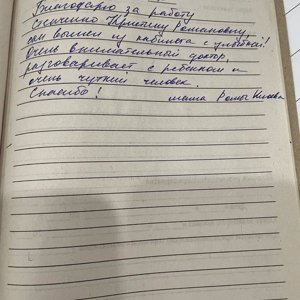 Благодарю за работу
Кристину Романовну,
сын вышел из кабинета с улыбкой!
Очень внимательный доктор,
разговаривает с ребенком и
очень чуткий человек.
Спасибо! мама Ромы